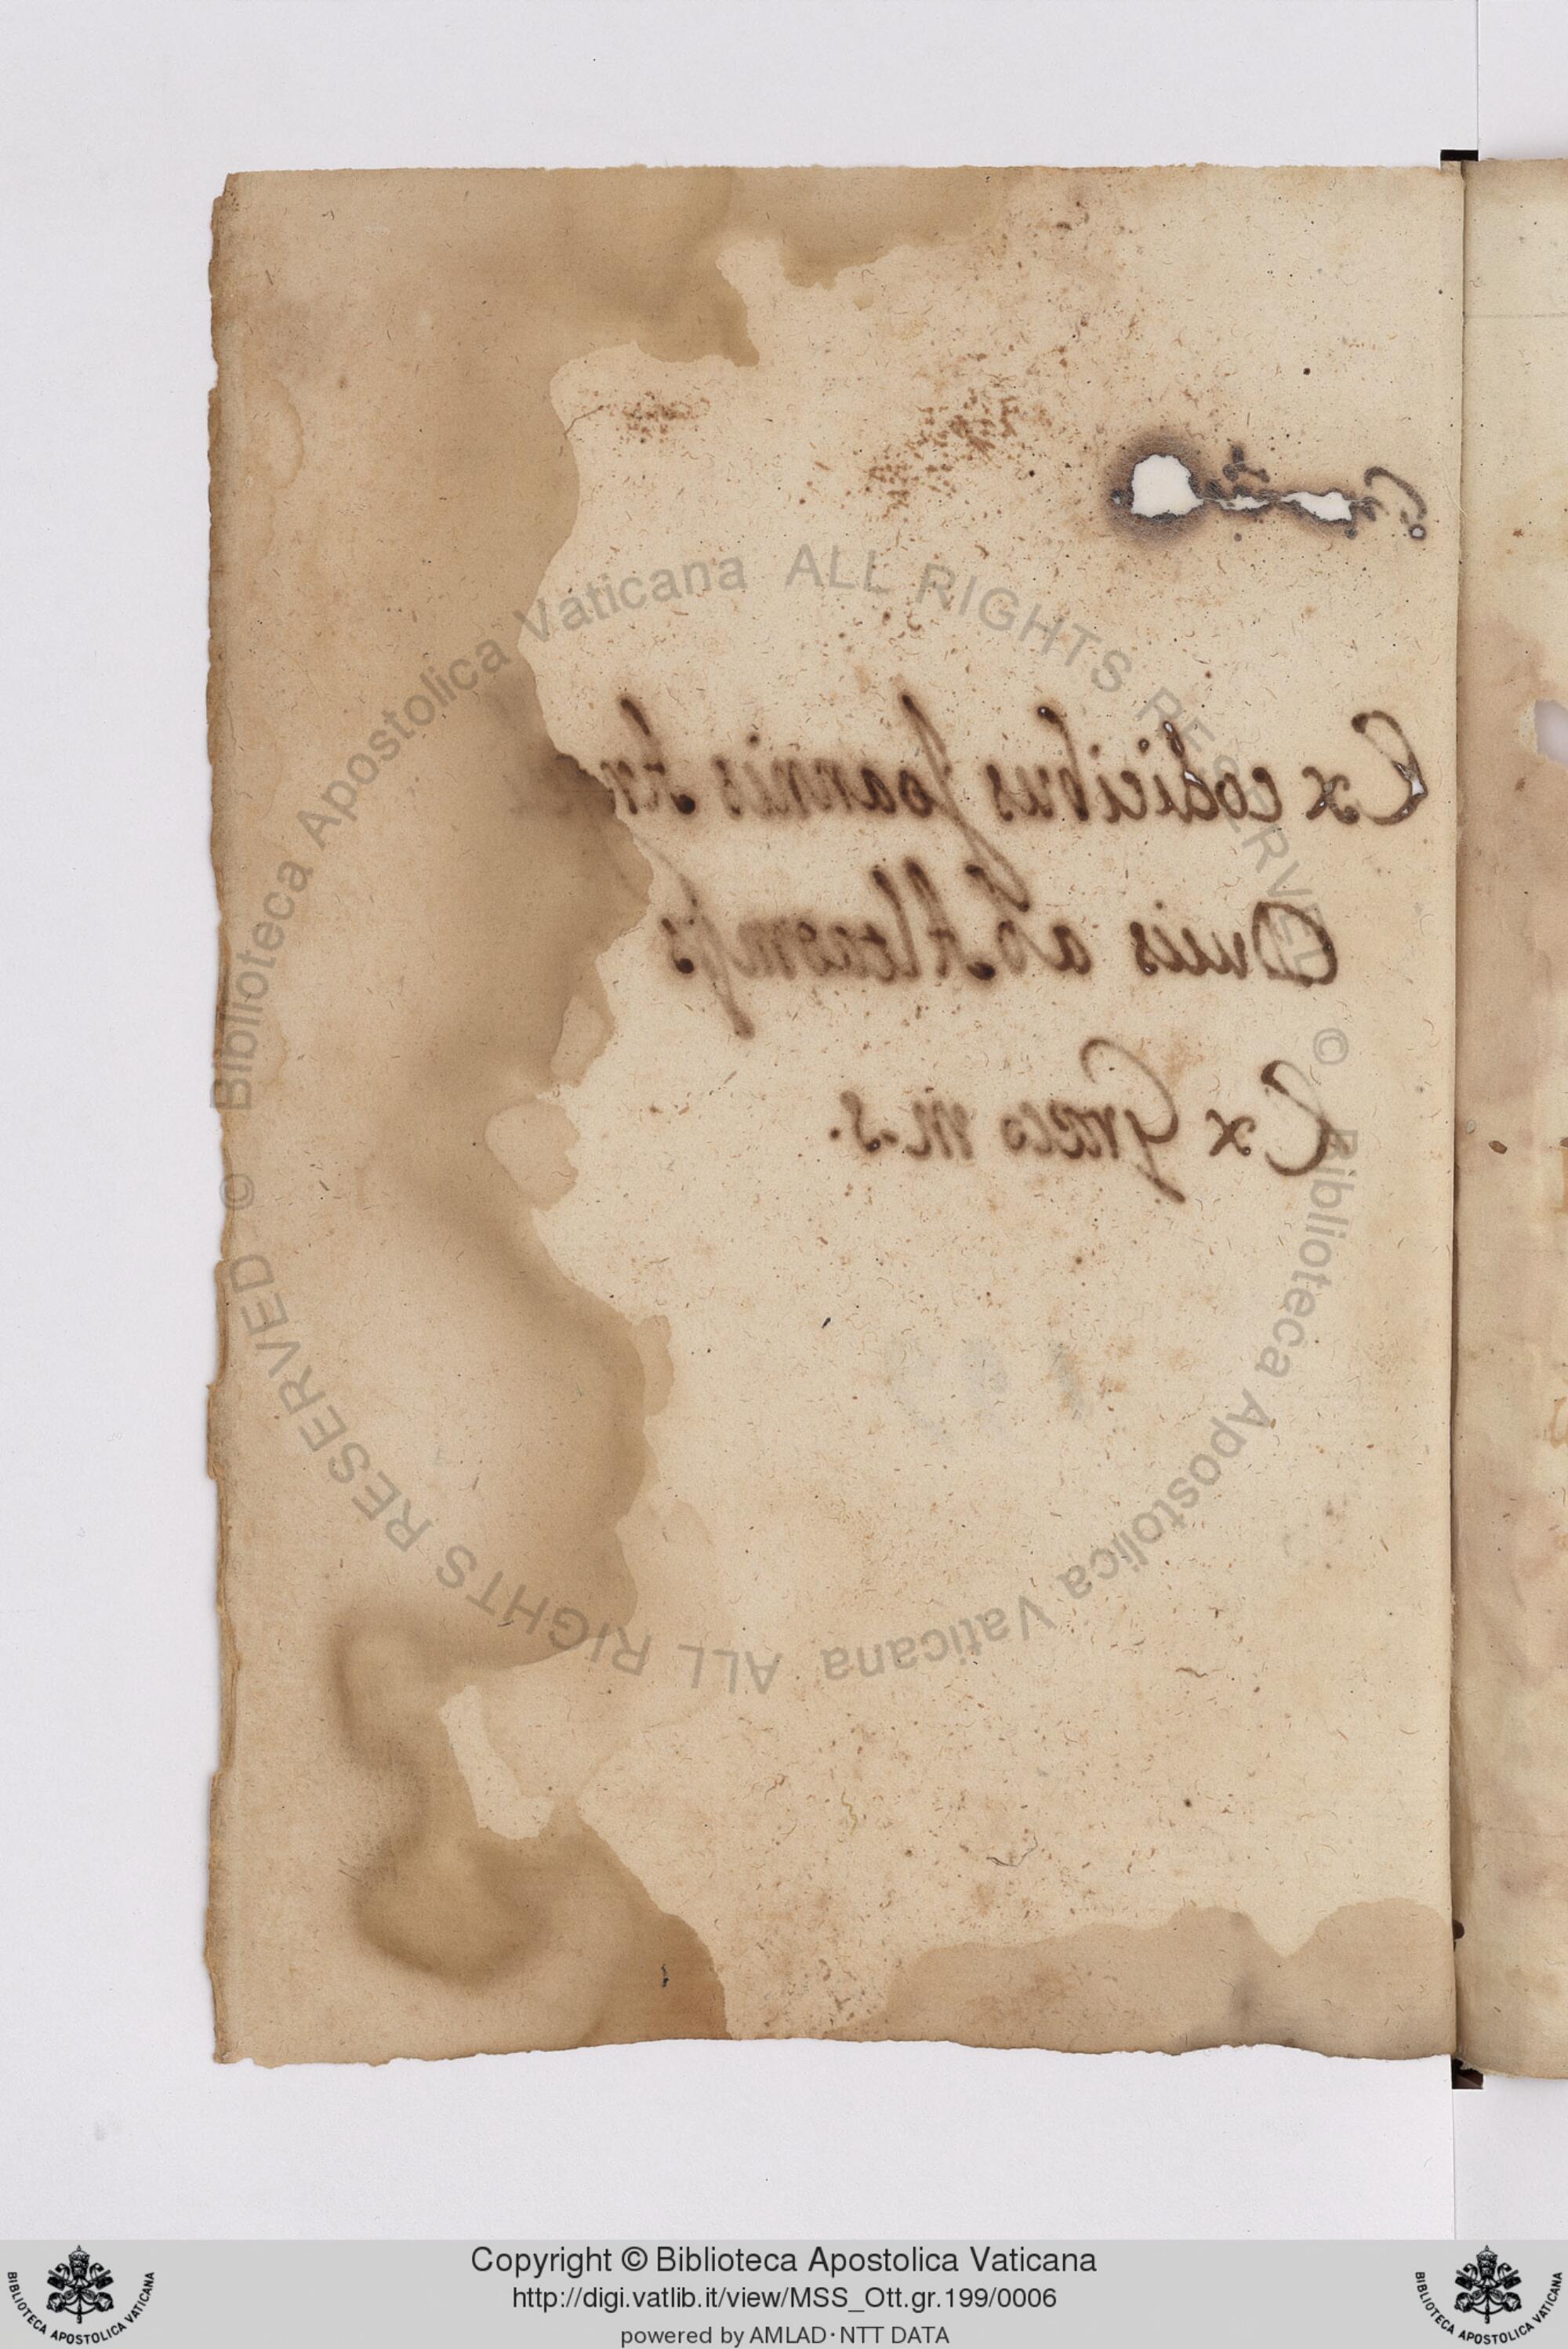 Ex codicibus Joannis An
Ducis ab Altaemps
Ex Graeco m.s.
Biblioteca Apostolica Vaticana ALL RIGHTS RESERVED © Biblioteca Apostolica Vaticana ALL RIGHTS RESERVED ©
Copyright © Biblioteca Apostolica Vaticana
http://digi.vatlib.it/view/MSS_Ott.gr.199/0006
powered by AMLAD·NTT DATA
BIBLIOTECA APOSTOLICA VATICANA
BIBLIOTECA APOSTOLICA VATICANA